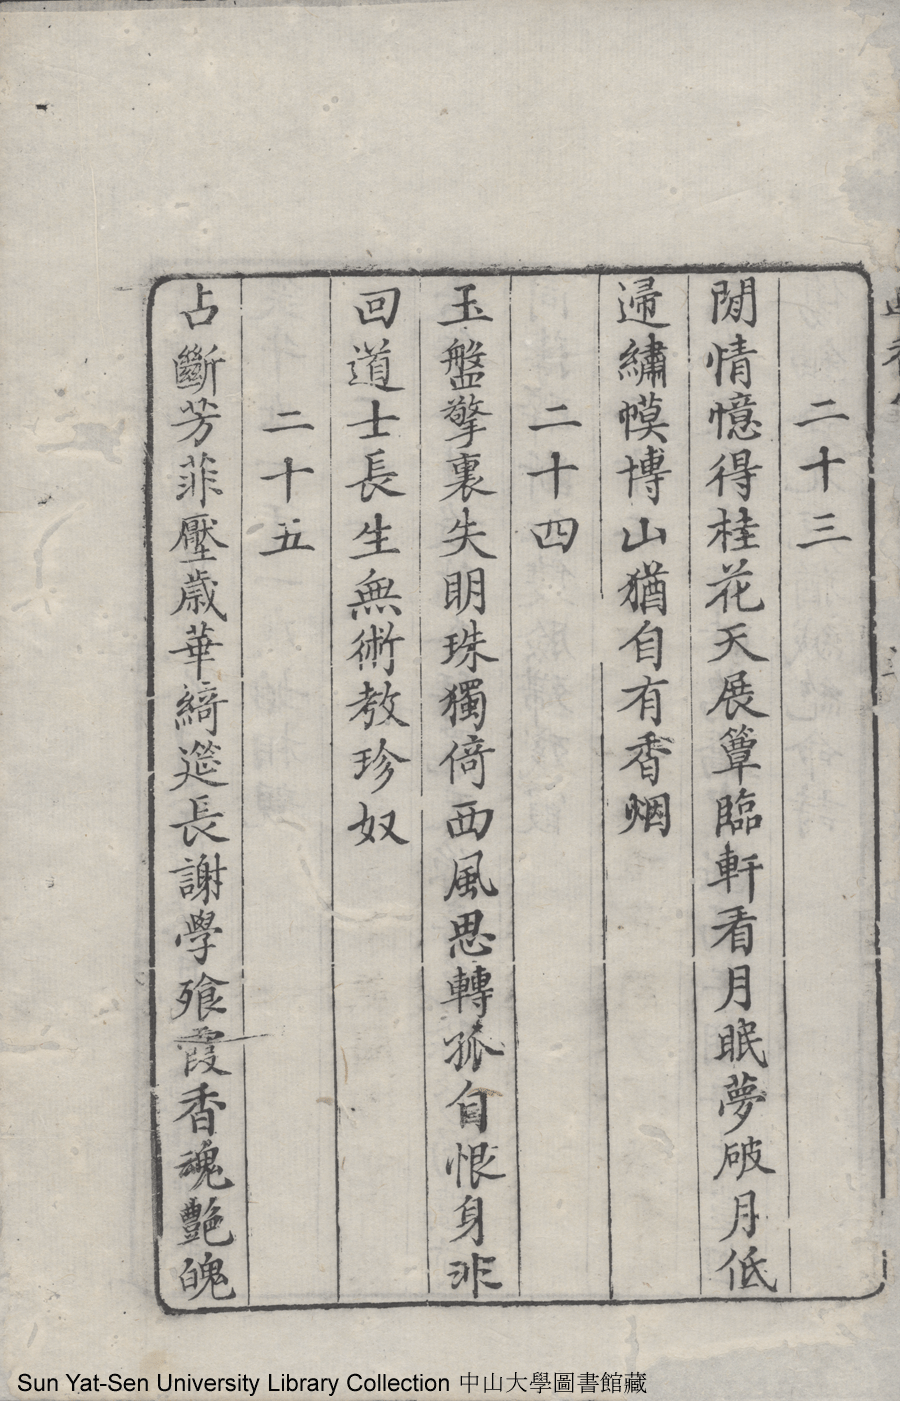 二十三
閒情憶得桂花天展簟臨軒看月眠夢破月低
歸繡幙博山猶自有香烟
二十四
玉盤擎裏失明珠獨倚西風思轉孤自恨身非
回道士長生無術教珍奴
二十五
占斷芳菲壓歲華綺筵長謝學飱霞香魂艶魄
Sun Yat-Sen University Library Collection 中山大學圖書館藏